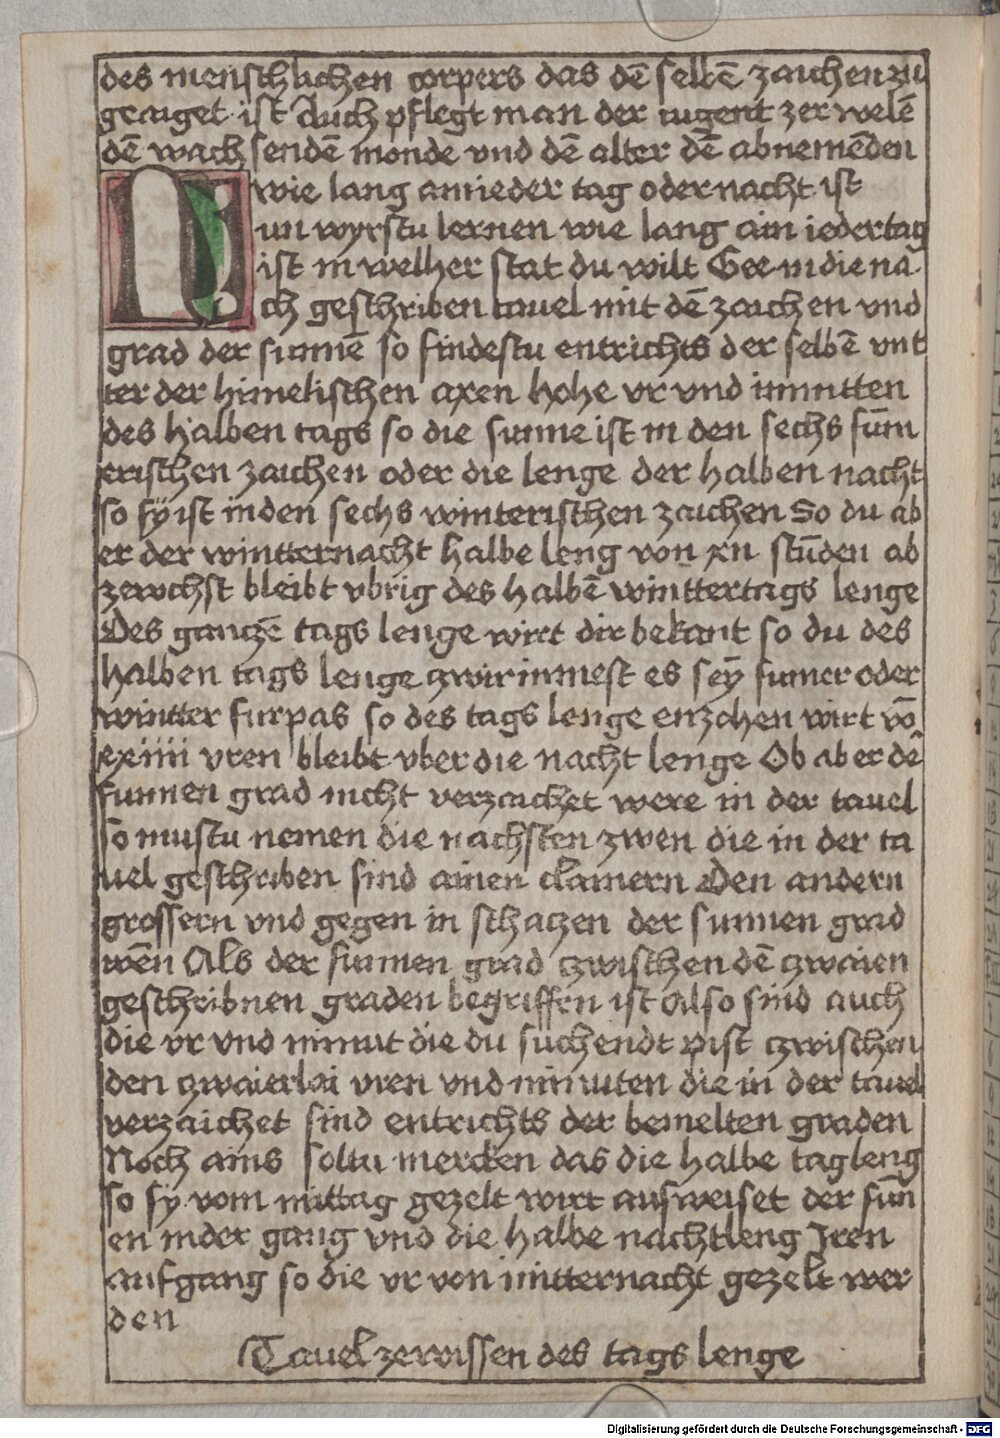 des menschlichen corpers das dē selbē zaichen zu
geaiget ist Auch pflegt man der iugent zer welē
dē wachsendē monde vnd dē alter dē abnemēden
wie lang ain ieder tag oder nacht ist
Nun wyrstu lernen wie lang ain ieder tag
ist in welher stat du wilt Gee in die na
ch geschriben tauel mit dē zaichen vnd
grad der sunnē so findestu entrichts der selbē vnt
ter der himelischen axen hohe vr vnd minutten
des halben tags so die sunne ist in den sechs sum̄
erischen zaichen oder die lenge der halben nacht
so sy ist in den sechs winterischen zaichen So du ab
er der wintternacht halbe leng von xii stūden ab
zeuchst bleibt vbrig des halbē winttertags lenge
Des ganczē tags lenge wirt dir bekant so du des
halben tags lenge zwir nimest es seÿ sumer oder
wintter furpas so des tags lenge enzohen wirt vō
xxiiii vren bleibt vber die nacht lenge Ob aber dē
sunnen grad nicht verzaichet were in der tauel
so mustu nemen die nachsten zwen die in der ta
uel geschriben sind ainen clainern Den andern
grossern vnd gegen in schaczen der sunnen grad
wēn Als der sunnen grad czwischen dē czwaien
geschribnen graden begriffen ist Also sind auch
die vr vnd minut die du suchendt pist czwischen
den czwaierlai vren vnd minuten die in der tauel
verzaichet sind entrichts der bemelten graden
Noch ains soltu mercken das die halbe tagleng
so sÿ vom mittag gezelt wirt ausweiset der sun̄
en nider gang vnd die halbe nachtleng Iren
aufgang so die vr von mitternacht gezelt wer
den
Tauel zewissen des tags lenge
Digitalisierung gefördert durch die Deutsche Forschungsgemeinschaft - DFG